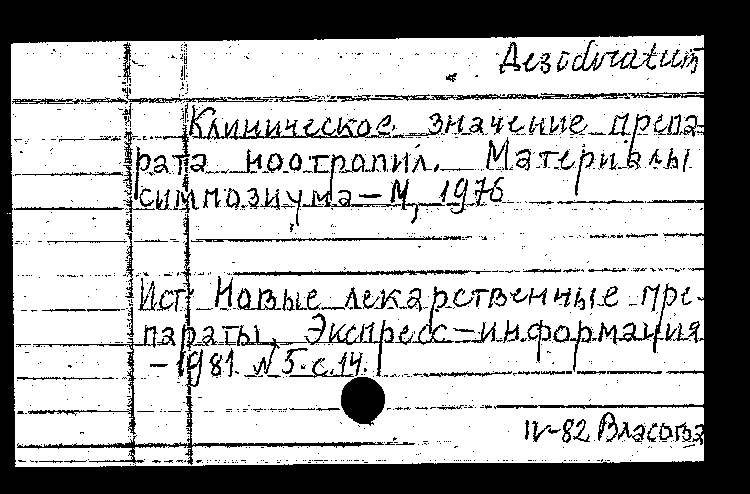 Desideratum
Клиническое значение препа-
рата ноотропил. Материалы
симпозиума – М, 1976
Ист: Новые лекарственные пре-
параты, Экспресс–информация
– 1981 № 5. с. 14.
IV-82 Власова